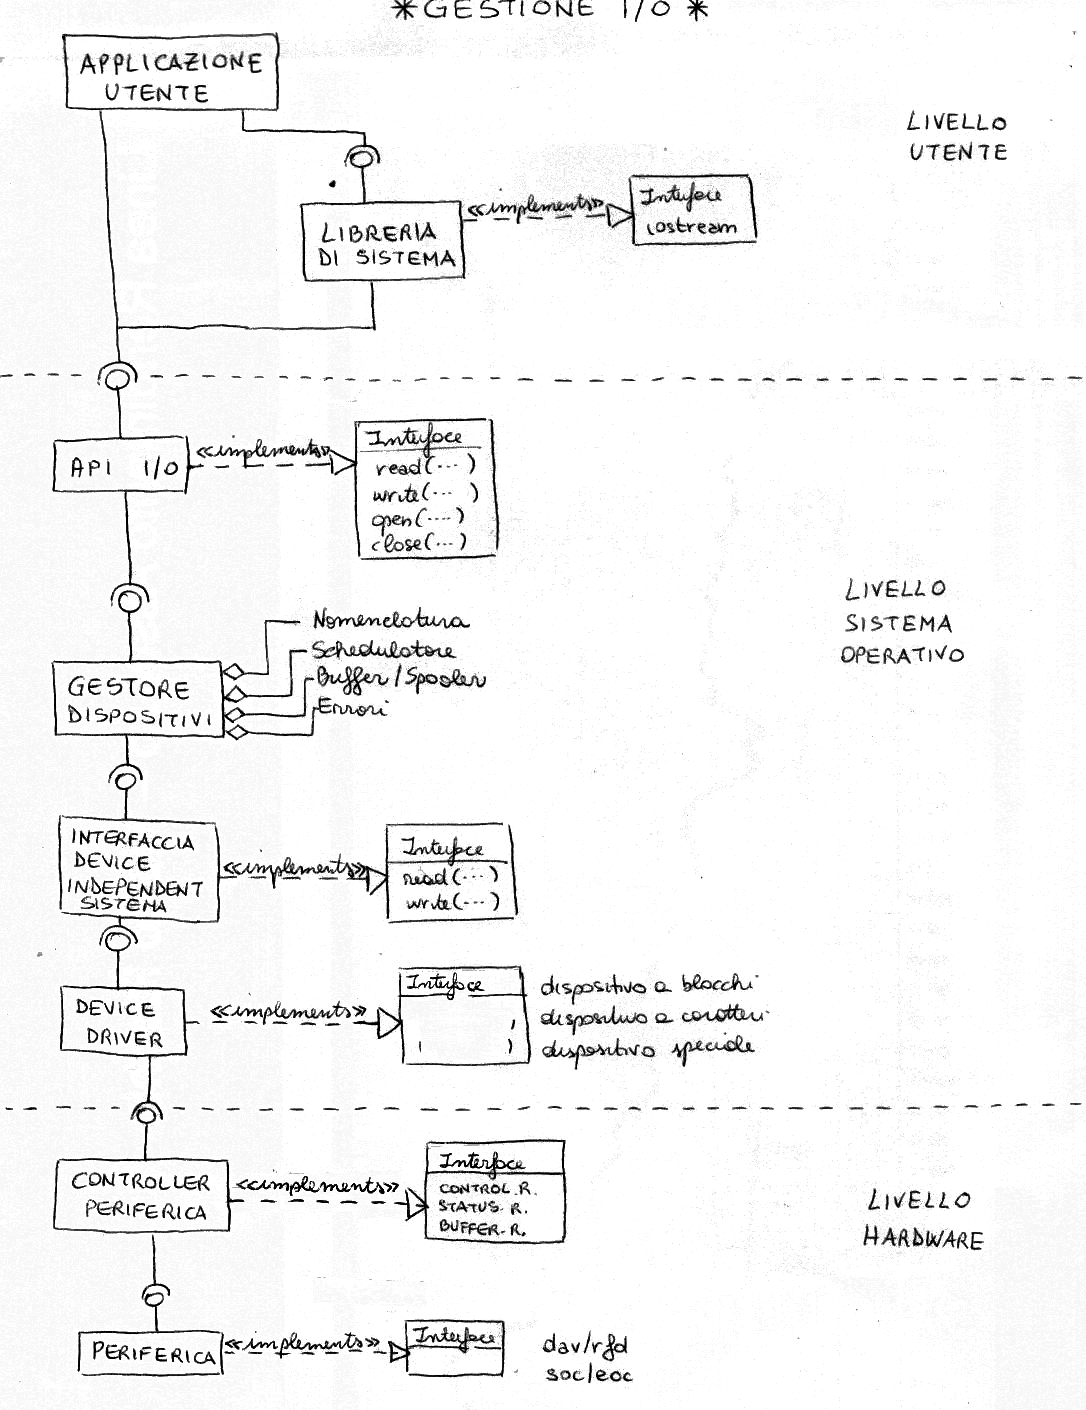 *GESTIONE I/O *
APPLICAZIONE
UTENTE
LIVELLO
UTENTE
LIBRERIA
DI SISTEMA
<<implements>>
Interface
iostream
API I/O
<<implements>>
Interface
read(...)
write(... )
open(....)
close(...)
LIVELLO
SISTEMA
OPERATIVO
GESTORE
DISPOSITIVI
Nomenclatura
Schedulatore
Buffer/Spooler
Errori
INTERFACCIA
DEVICE
INDEPENDENT
SISTEMA
<<implements>>
Interface
read(...)
write(...)
DEVICE
DRIVER
<<implements>>
Interface
dispositivo a blocchi
dispositivo a caratteri
dispositivo speciale
CONTROLLER
PERIFERICA
<<implements>>
Interface
CONTROL.R.
STATUS.R.
BUFFER.R.
LIVELLO
HARDWARE
PERIFERICA
<<implements>>
Interface
dav/rfd
soc/eoc